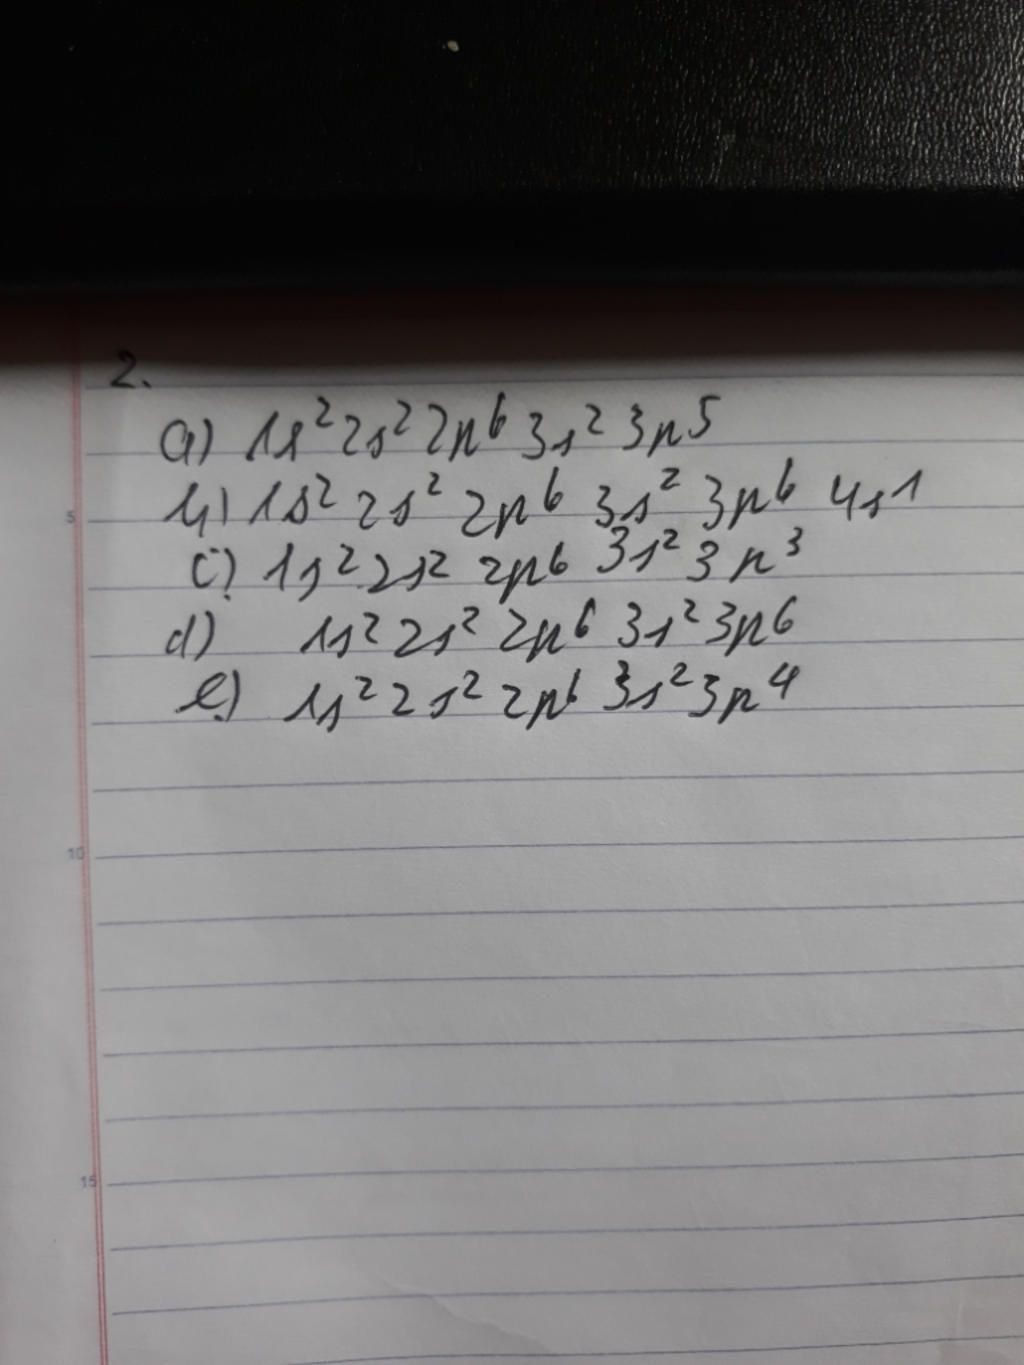 2.
a) 1s² 2s² 2p⁶ 3s² 3p⁵
5 b) 1s² 2s² 2p⁶ 3s² 3p⁶ 4s¹
c) 1s² 2s² 2p⁶ 3s² 3p³
d) 1s² 2s² 2p⁶ 3s² 3p⁶
e) 1s² 2s² 2p⁶ 3s² 3p⁴
10
15